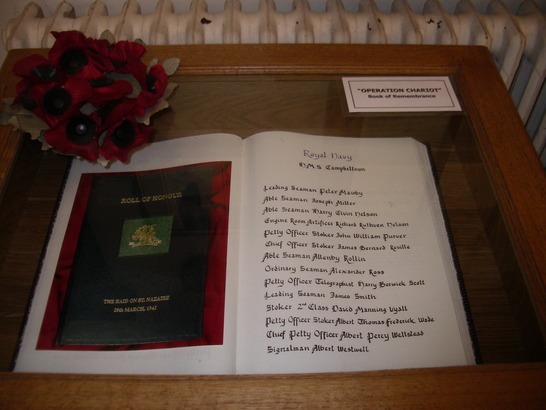 "OPERATION CHARIOT"
Book of Remembrance
ROLL OF HONOUR
THE RAID ON ST. NAZAIRE
28th MARCH, 1942
Royal Navy
H.M.S Campbeltown
Leading Seaman Peter Mauby
Able Seaman Joseph Miller
Able Seaman Harry Civin Nelson
Engine Room Artificer Richard Ruthven Nelson
Petty Officer Stoker John William Purver
Chief Officer Stoker James Bernard Roville
Able Seaman Allenby Rollin
Ordinary Seaman Alexander Ross
Petty Officer Telegraphist Harry Berwick Scott
Leading Seaman James Smith
Stoker 2nd Class David Manning Vyall
Petty Officer Stoker Albert Thomas Frederick Wade
Chief Petty Officer Albert Percy Wellstead
Signalman Albert Westwell